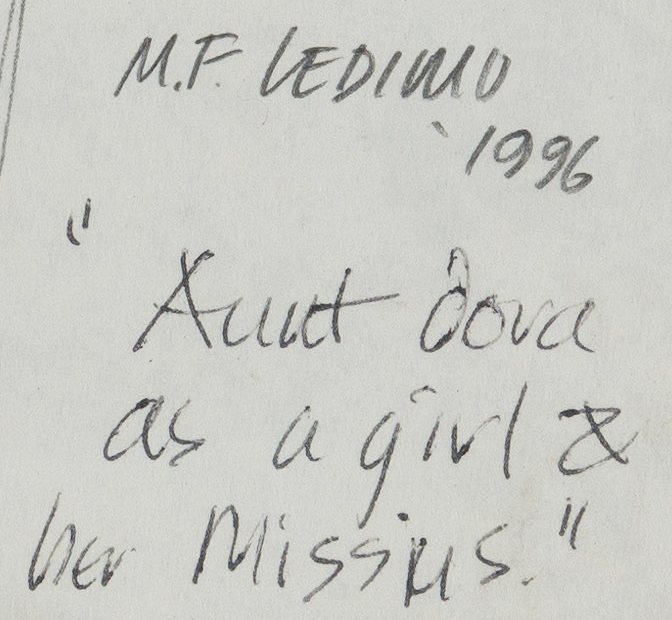 M.F. LEDIMO
1996
"Aunt dora
as a girl &
her Missus."